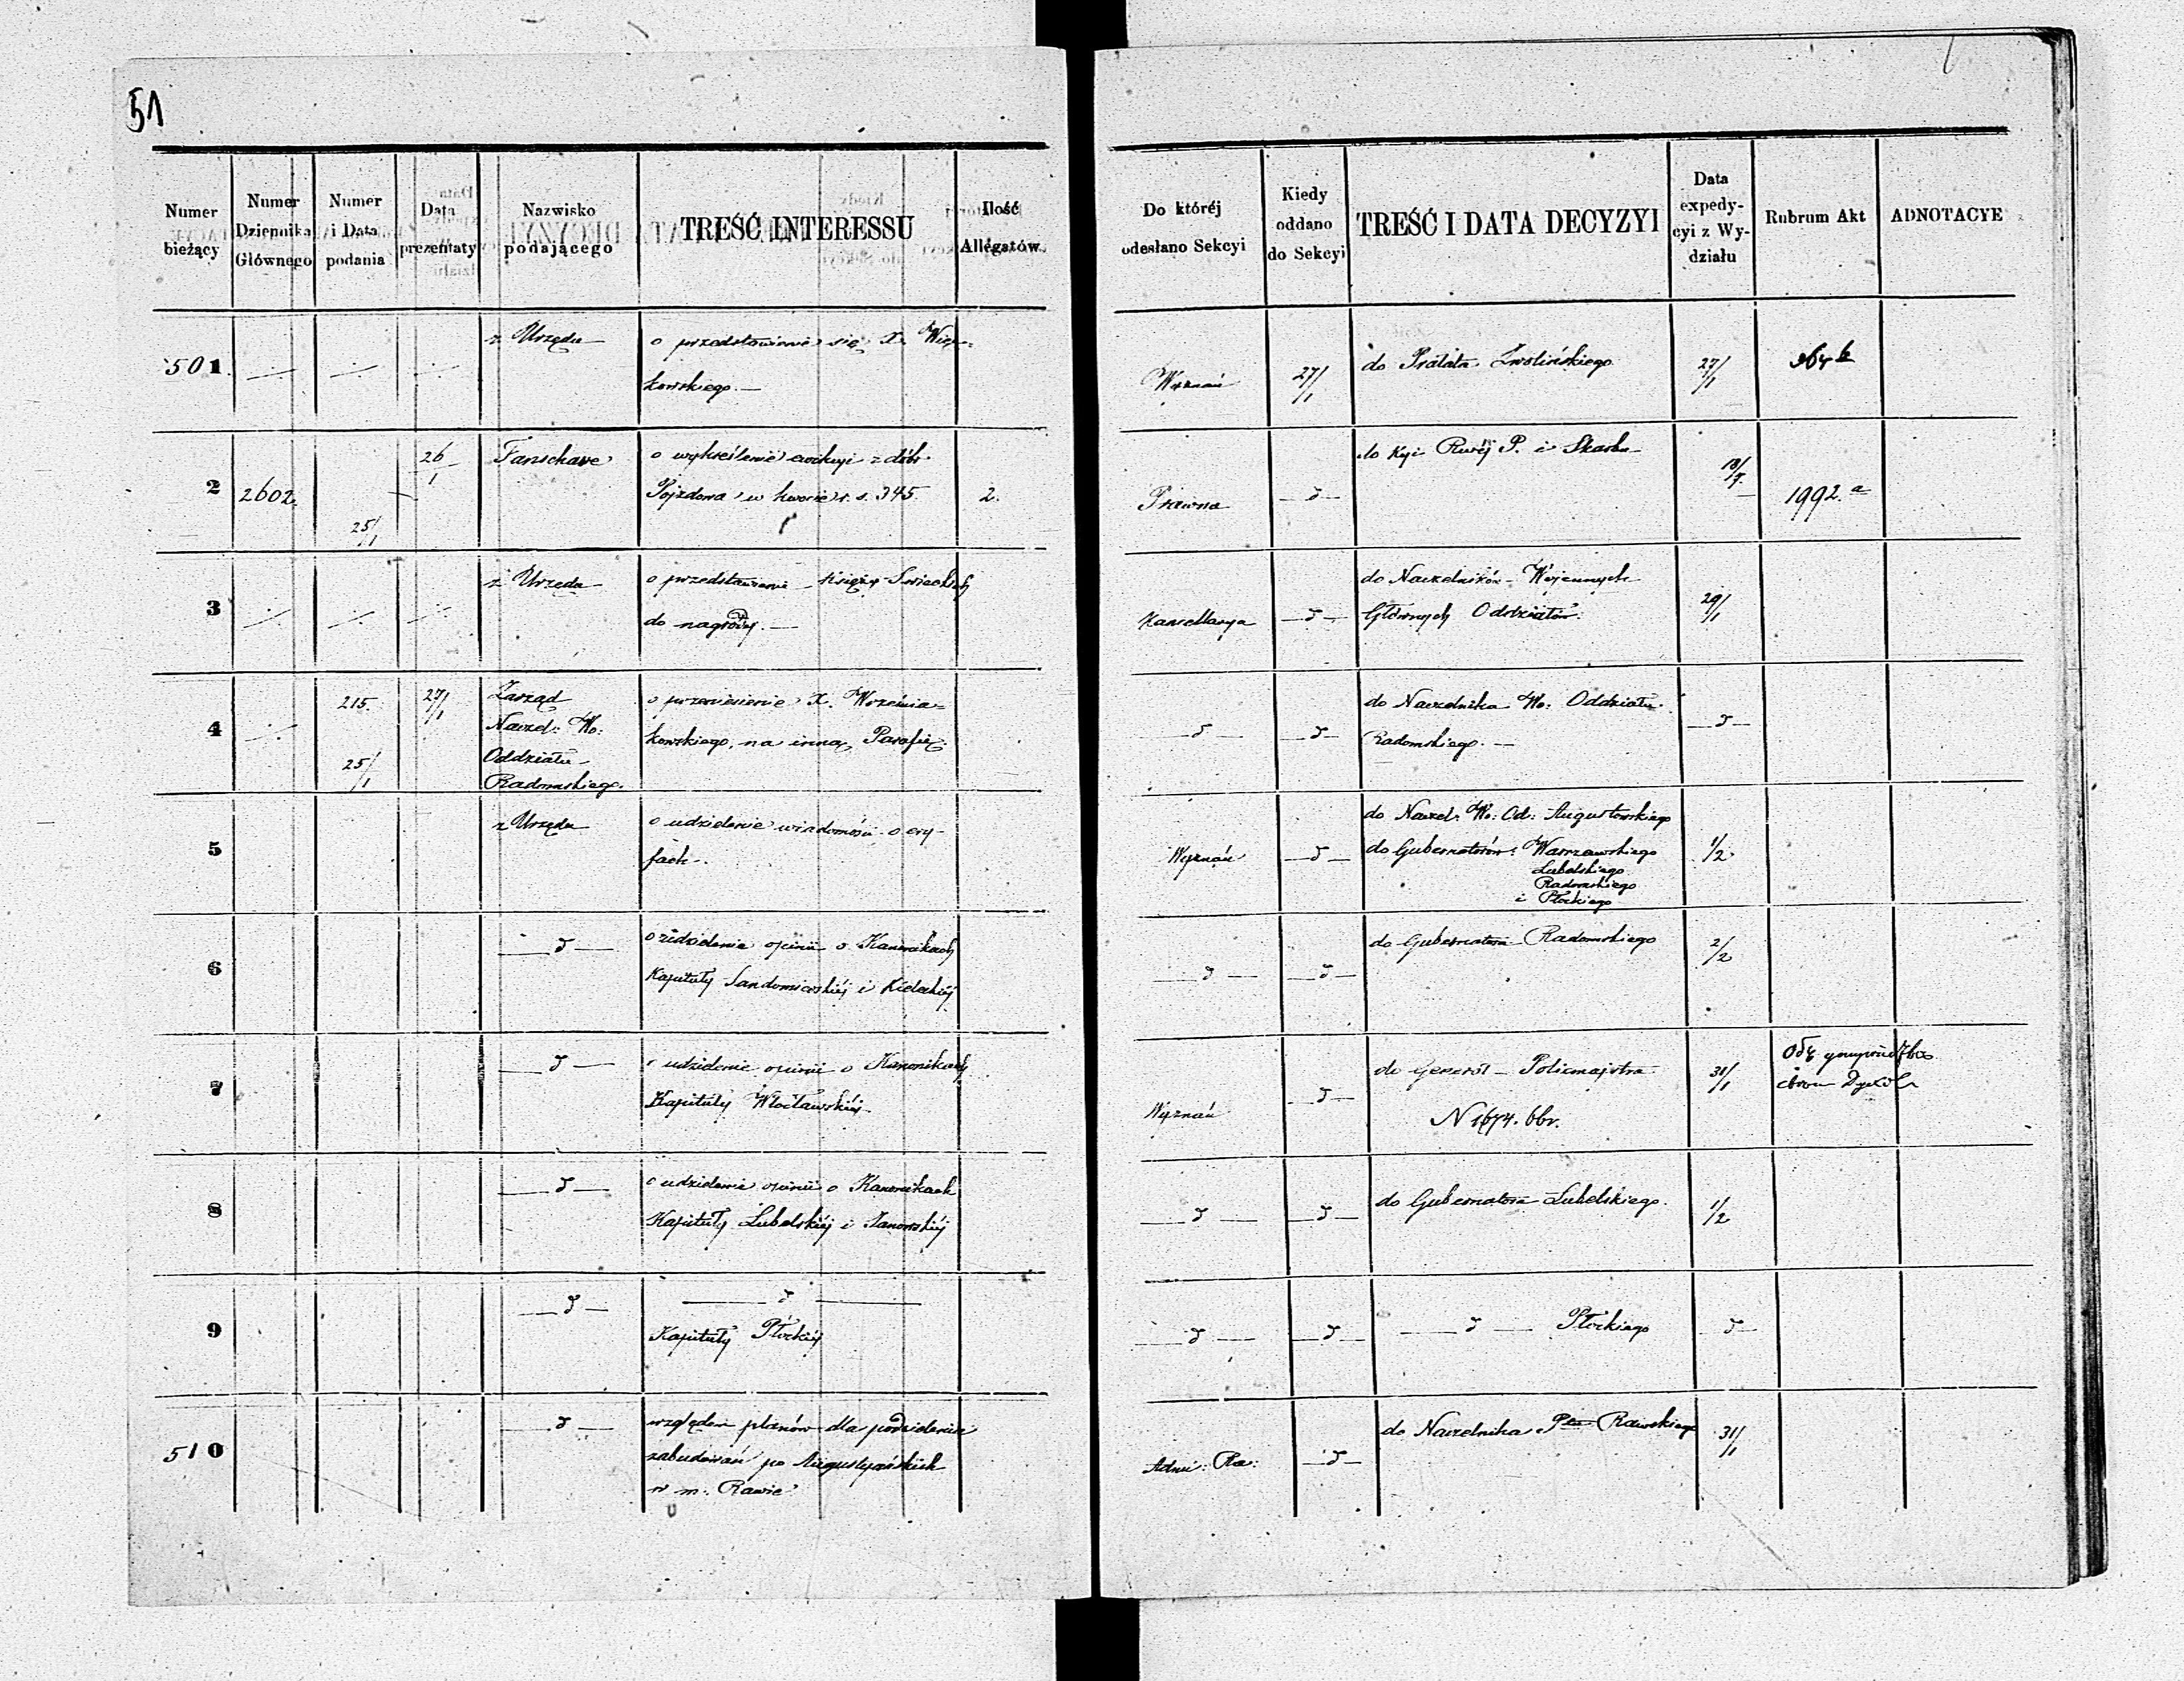 51
Numer bieżący
Numer Dziennika Głównego
Numer i Data podania
Data prezentaty
Nazwisko podającego
TREŚĆ INTERESSU
Ilość Allegatów
Do któréj odesłano Sekcyi
Kiedy oddano do Sekcyi
TREŚĆ I DATA DECYZYI
Data expedycyi z Wydziału
Rubrum Akt
ADNOTACYE
501
z Urzędu
o przedstawienie się X. Więc=
kowskiego. —
Wyznań
27/1
do Prałata Zwolińskiego
27/1
2
2602.
25/1
26/1
Fanschave
o wykreślenie ewikcyi z dóbr
Pojzdowa w kwocie r. s. 345
2.
Prawna
— d —
do Kyi Rwéj P. i Skarbu
18/7
1992. a
3
z Urzędu
o przedstawienie księży Świeckich
do nagrody. —
Kancellarya
— d —
do Naczelników Wojennych
Głównych Oddziałów.
29/1
4
215.
25/1
27/1
Zarząd
Naczel: Wo:
Oddziału
Radomskiego.
o przeniesienie X. Września=
kowskiego, na inną Parafię.
— d —
— d —
do Naczelnika Wo: Oddziału
Radomskiego. —
— d —
5
z Urzędu
o udzielenie wiadomości o cy-
frach.
Wyznań
— d —
do Naczel: Wo: Od: Augustowskiego
do Gubernatorów: Warszawskiego
Lubelskiego
Radomskiego
i Płockiego
1/2
6
— d —
o udzielenie opinii o Kanonikach
Kapituły Sandomierskiéj i Kieleckiéj
— d —
— d —
do Gubernatora Radomskiego
2/2
7
— d —
o udzielenie opinii o Kanonikach
Kapituły Włocławskiéj
Wyznań
— d —
do Generał Policmajstra
N 1674. bbr.
31/1
8
— d —
o udzielenie opinii o Kanonikach
Kapituły Lubelskiéj i Janowskiéj
— d —
— d —
do Gubernatora Lubelskiego.
1/2
9
— d —
— d —
Kapituły Płockiéj
— d —
— d —
— d — Płockiego
— d —
510
— d —
względem planów dla podzielenia
zabudowań po Augustyańskich
w m. Rawie
— d —
do Naczelnika Ptu Rawskiego
31/1